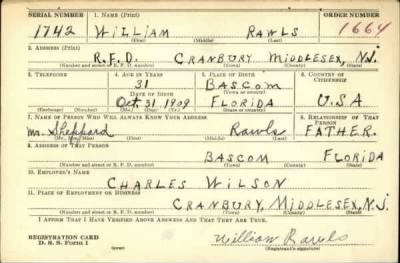 SERIAL NUMBER 1. NAME (Print) ORDER NUMBER
1742 WILLIAM RAWLS 1664
(First) (Middle) (Last)
2. ADDRESS (Print)
R.F.D. CRANBURY MIDDLESEX, N.J.
(Number and street or R. F. D. number) (Town) (County) (State)
3. TELEPHONE 4. AGE IN YEARS 5. PLACE OF BIRTH 6. COUNTRY OF CITIZENSHIP
31 BASCOM
DATE OF BIRTH (Town or county)
Oct. 31, 1909 FLORIDA U.S.A
(Exchange) (Number) (Mo.) (Day) (Yr.) (State or country)
7. NAME OF PERSON WHO WILL ALWAYS KNOW YOUR ADDRESS 8. RELATIONSHIP OF THAT PERSON
Mr. Sheppard Rawls FATHER.
(Mr., Mrs., Miss) (First) (Middle) (Last)
9. ADDRESS OF THAT PERSON
BASCOM FLORIDA
(Number and street or R. F. D. number) (Town) (County) (State)
10. EMPLOYER'S NAME
CHARLES WILSON
11. PLACE OF EMPLOYMENT OR BUSINESS
CRANBURY, MIDDLESEX, N.J.
(Number and street or R. F. D. number) (Town) (County) (State)
I AFFIRM THAT I HAVE VERIFIED ABOVE ANSWERS AND THAT THEY ARE TRUE.
REGISTRATION CARD
D. S. S. Form 1 William Rawls
(Registrant's signature)